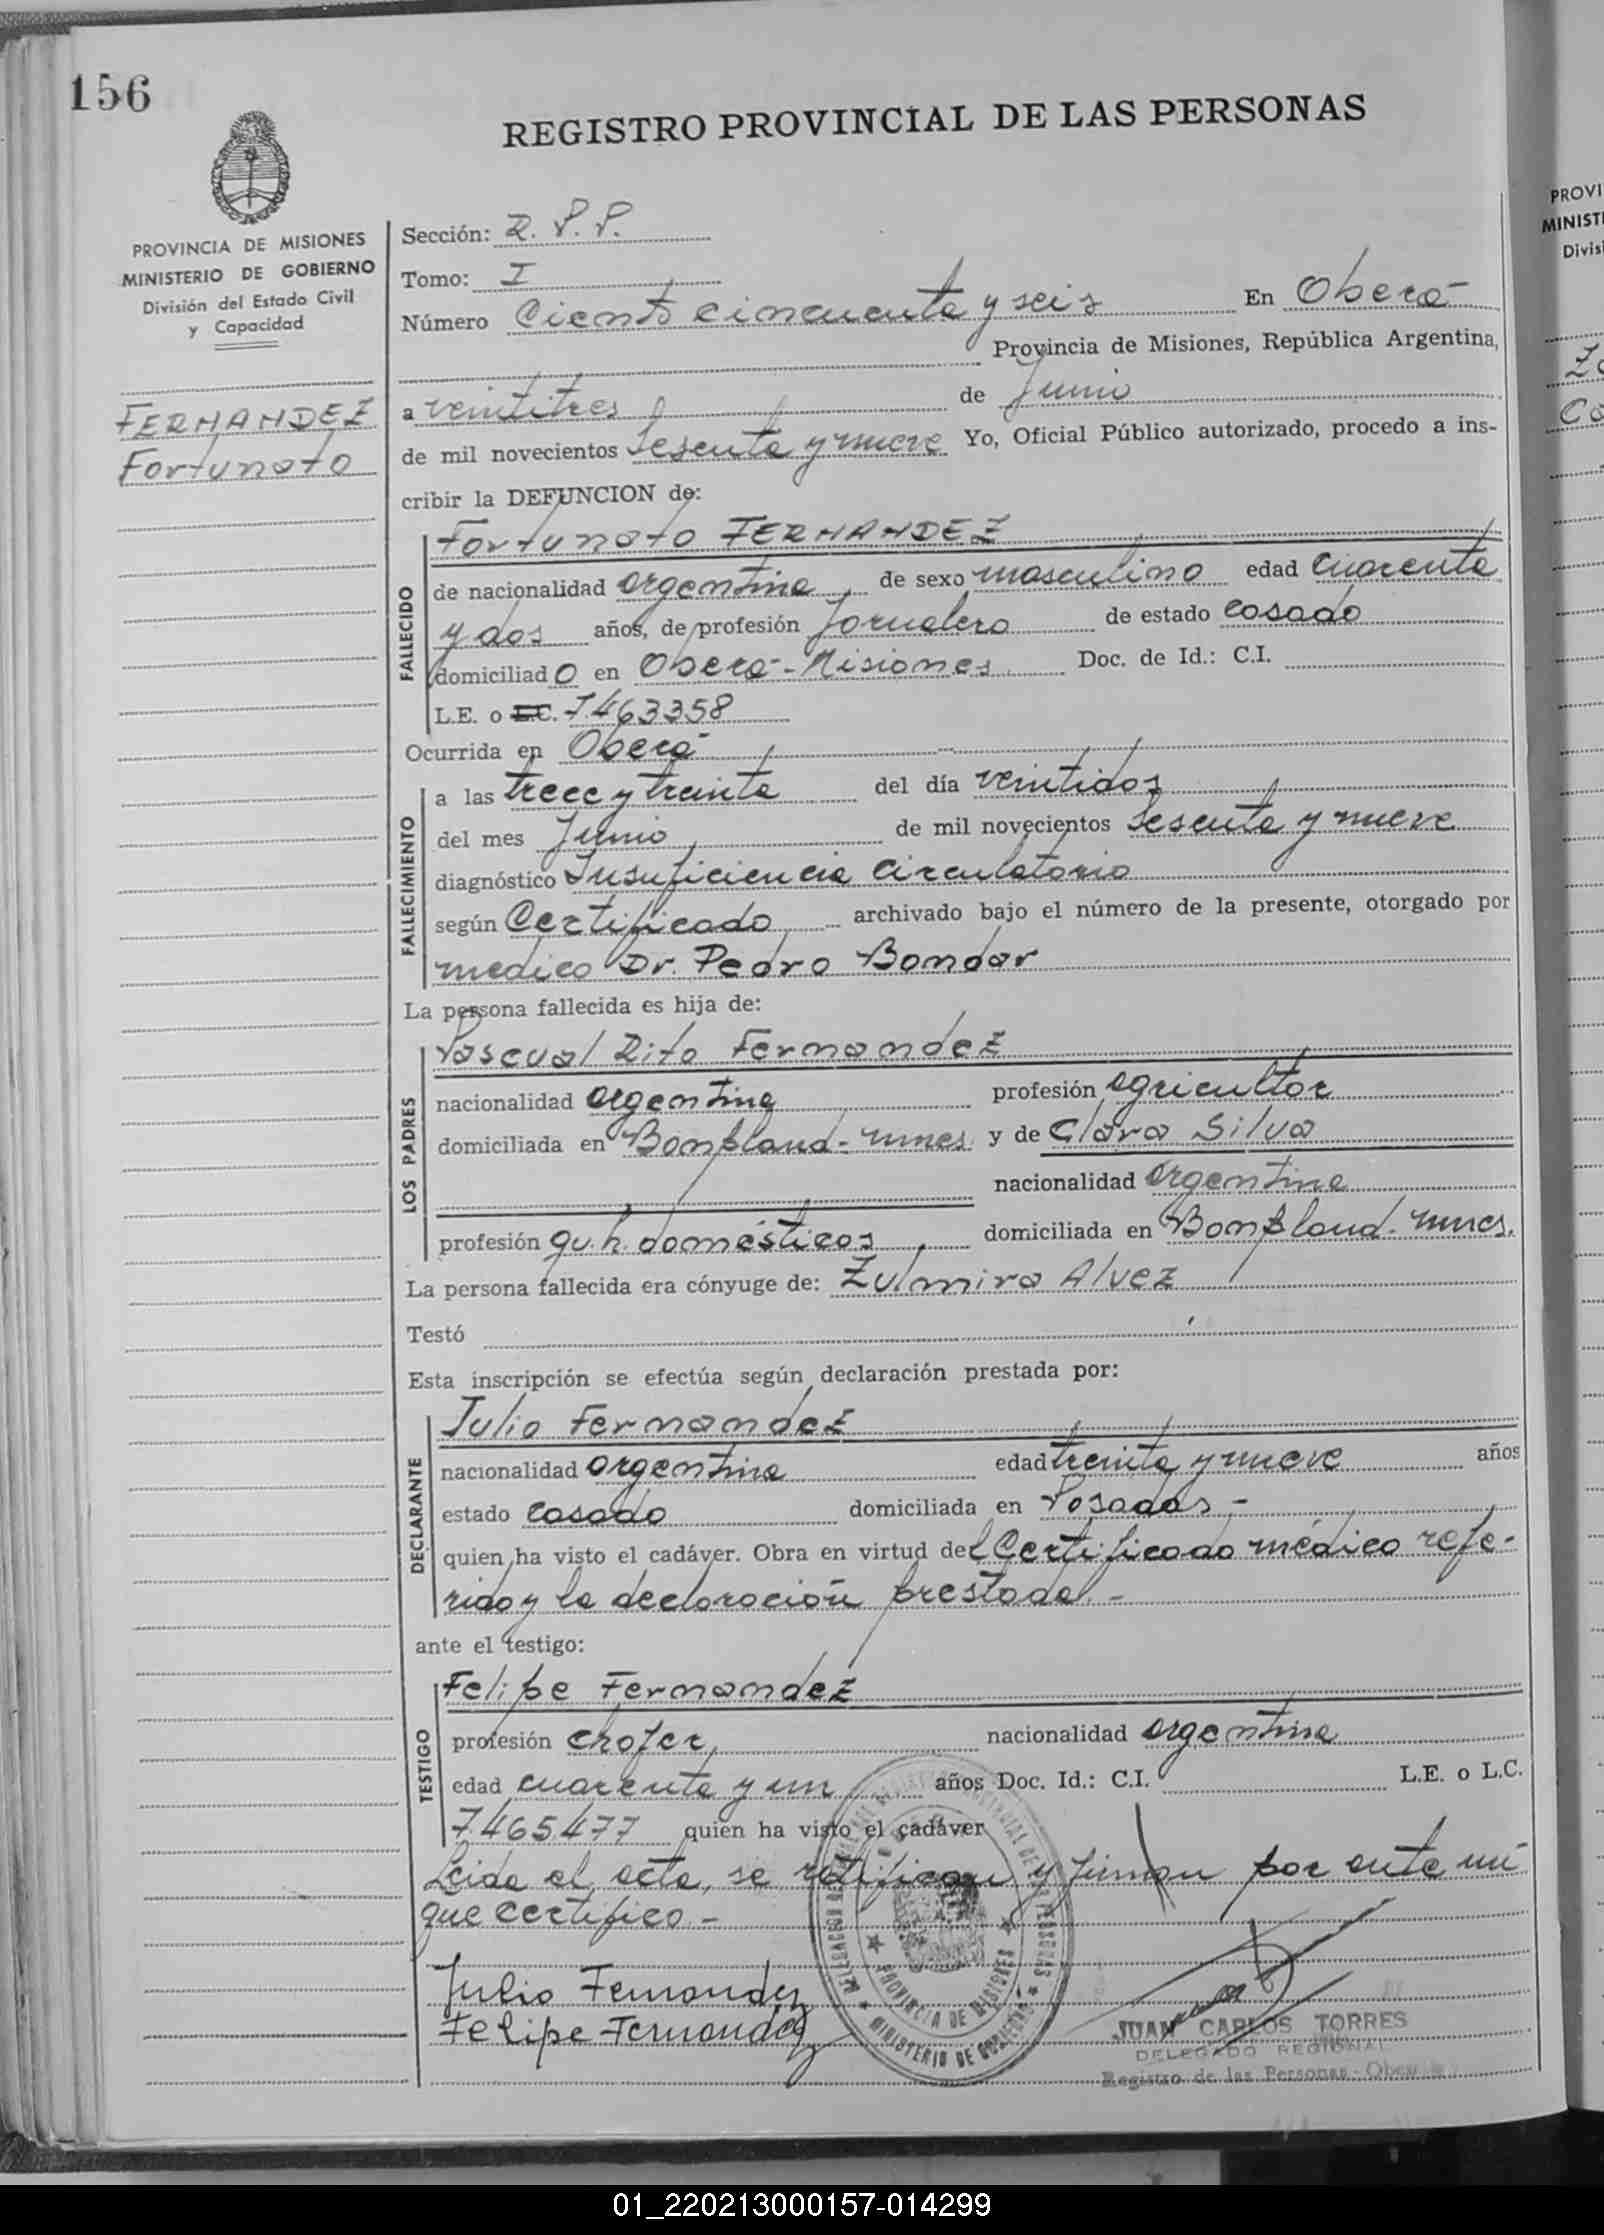 156
REGISTRO PROVINCIAL DE LAS PERSONAS
PROVINCIA DE MISIONES
MINISTERIO DE GOBIERNO
División del Estado Civil
y Capacidad
FERNANDEZ
Fortunato
Sección: R. P. P.
Tomo: I
Número Ciento cincuenta y seis En Oberá-
Provincia de Misiones, República Argentina,
a veintitres de Junio
de mil novecientos Sesenta y nueve Yo, Oficial Público autorizado, procedo a ins-
cribir la DEFUNCION de:
FALLECIDO
Fortunato FERNANDEZ
de nacionalidad argentina de sexo masculino edad cuarenta
y dos años, de profesión Jornalero de estado casado
domiciliado en Oberá-Misiones Doc. de Id.: C.I.
L.E. o L.C. 7.463358
Ocurrida en Oberá
FALLECIMIENTO
a las trece y treinta del día veintidos
del mes Junio de mil novecientos Sesenta y nueve
diagnóstico Insuficiencia circulatoria
según Certificado archivado bajo el número de la presente, otorgado por
medico Dr. Pedro Bondar
La persona fallecida es hija de:
LOS PADRES
Pascual Rito Fernandez
nacionalidad argentina profesión agricultor
domiciliada en Bonpland-mnes. y de Clara Silva
nacionalidad argentina
profesión qu. h. domésticos domiciliada en Bonpland-mnes.
La persona fallecida era cónyuge de: Zulmira Alvez
Testó
Esta inscripción se efectúa según declaración prestada por:
DECLARANTE
Julio Fernandez
nacionalidad argentina edad treinta y nueve años
estado casado domiciliada en Posadas-
quien ha visto el cadáver. Obra en virtud del Certificado médico refe-
rido y la declaración prestada.-
ante el testigo:
TESTIGO
Felipe Fernandez
profesión chofer nacionalidad argentina
edad cuarenta y un años Doc. Id.: C.I. L.E. o L.C.
7.465.477 quien ha visto el cadáver
Leida el acta, se ratifican y firman por ante mi
que certifico-
Julio Fernandez
Felipe Fernandez
PROVINCIA DE MISIONES
MINISTERIO DE GOBIERNO
JUAN CARLOS TORRES
DELEGADO REGIONAL
Registro de las Personas - Oberá
PROVI
MINIST
Divis
01_220213000157-014299